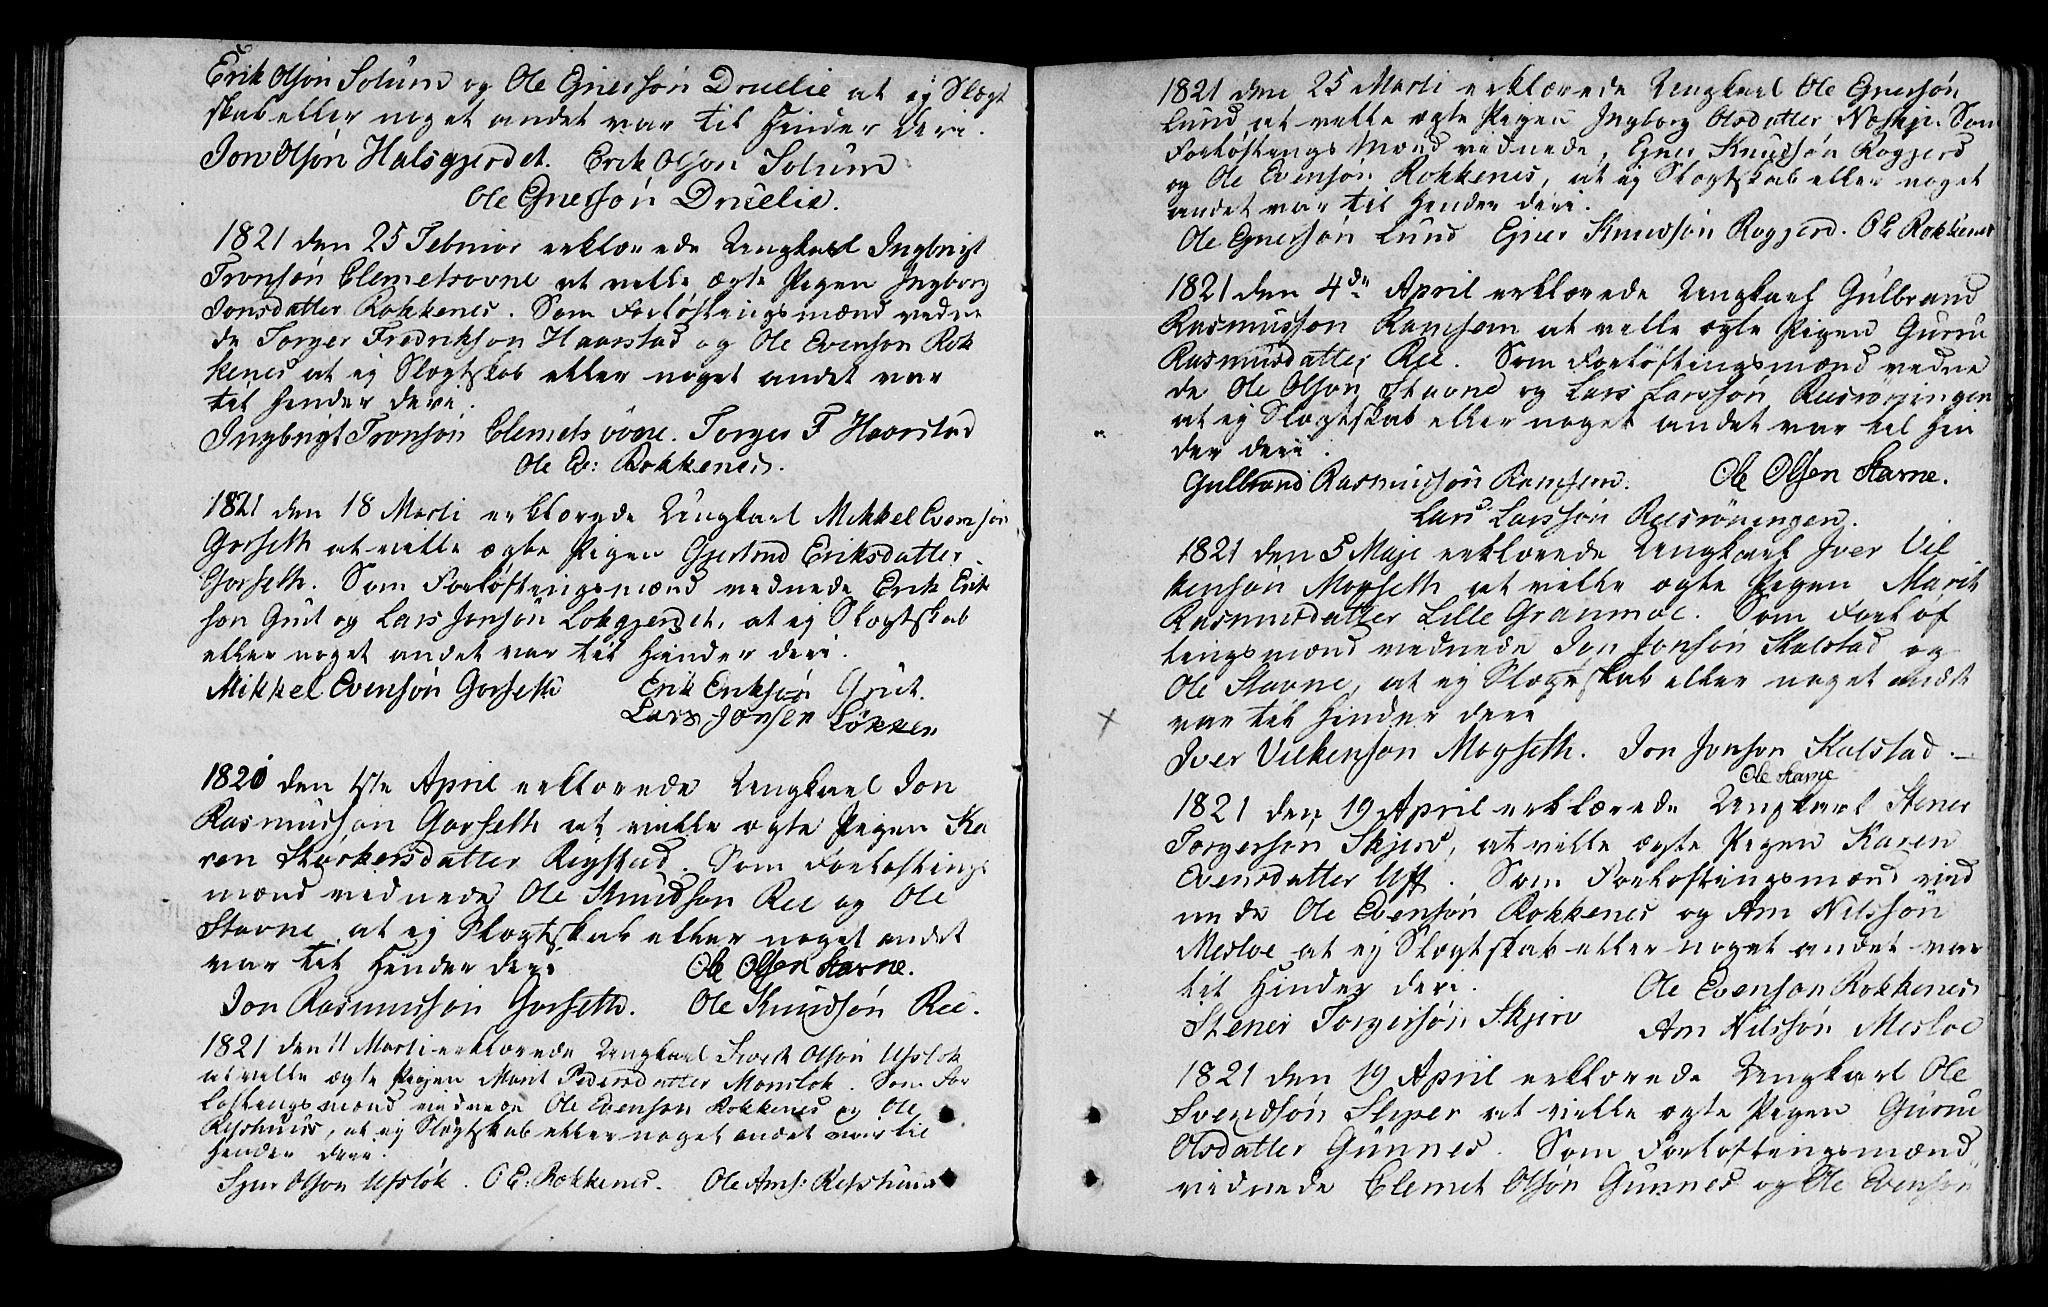 Erik Olsøn Solum og Ole Gnersøn Druelie at ej Slægt
skab eller noget andet var til Hinder deri.
Jon Olsøn Halsgjerdet. Erik Olsøn Solum
Ole Gnersøn Druelie.
1821 den 25 Februar erklærede Ungkarl Ingbrigt
Tronsøn Clemetsovne at velle ægte Pigen Ingborg
Jonsdatter Rokkenes. Som Forløftingsmænd vedne
de Torger Fredrikson Haarstad og Ole Evenson Rok
kenes at ej Slægtskab eller noget andet var
til Hinder deri.
Ingbrigt Tronsøn Clemetsovne. Torger F Haarstad
Ole Ev: Rokkenes.
1821 den 18 Marti erklærede Ungkarl Mikkel Evensøn
Gorseth at velle ægte Pigen Gjertrud Eriksdatter
Gorseth. Som Forløftingsmænd vednede Erik Erik
søn Grut og Lars Jonsøn Løkgjerdet, at ej Slægtskab
eller noget andet var til Hinder deri.
Mikkel Evensøn Gorseth Erik Eriksøn Grut.
Lars Jonsen Løkken
1821 den 1ste April erklærede Ungkarl Jon
Rasmusson Gorseth at vielle ægte Pigen Ka
ren Størkersdatter Rigstad. Som Forløftings
mænd vednede Ole Knudson Ree og Ole
Stavne, at ej Slægtskab eller noget andet
var til Hinder deri Ole Olsen Stavne.
Jon Rasmusson Gorseth. Ole Knudsøn Ree.
1821 den 11 Marti erklærede Ungkarl Olsøn Usslok
at velle ægte Pigen Marit Pedersdatter Momslok. Som For
løftings mænd viednede Ole Evenson Rokkenes og Ole
Reshuus, at ej Slægtskab eller noget andet var til
Hinder deri.
Olson Usslok. O E: Rokkenes. Ole Arns:
1821 den 25 Marti erklærede Ungkarl Ole Gnersøn
Lund at velle ægte Pigen Ingborg Olsdatter Som
Forløftings Mænd vednede, Gner Knudsøn Rogjerd
og Ole Evensøn Rokkenes, at ej Slægtskab eller noget
andet var til Hinder deri.
Ole Gnersøn Lund Gner Knudsøn Rogjerd. Ole Rokkenes
1821 den 4de April erklærede Ungkarl Gulbrand
Rasmusson Ramsem at velle ægte Pigen Gurru
Rasmusdatter Ree. Som Forløftingsmænd vedne
de Ole Olson Stavne og Lars Larssøn Reesrøningen
at ej Slægtskab eller noget andet var til Hin
der deri.
Gulbrand Rasmussøn Ramsem. Ole Olsen Stavne.
Lars Larssøn Reesrøningen.
1821 den 5 Maje erklærede Ungkarl Iver Vil
kensøn Mogseth at velle ægte Pigen Marit
Rasmusdatter Lille Granmoe. Som Forløf
tingsmænd vednede Jon Jonsøn Kalstad og
Ole Stavne, at ej Slægtskab eller noget andet
var til Hinder deri
Iver Vilkenson Mogseth. Jon Jonson Kalstad.
Ole Stavne
1821 den 19 April erklærede Ungkarl Stener
Torgersøn Skjerv, at velle ægte Pigen Karen
Evensdatter Uff. Som Forløftingsmænd vied
nede Ole Evensøn Rokkenes og Arn Nilssøn
Mesloe at ej Slægtskab eller noget andet var
til Hinder deri. Ole Evenson Rokkenes
Stener Torgersøn Skjerv Arn Nilssøn Mesloe
1821 den 19 April erklærede Ungkarl Ole
Svendsøn Sliper at vielle ægte Pigen Gurru
Olsdatter Gunnes. Som Forløftingsmænd
vednede Clemet Olsøn Gunnes og Ole Evensøn